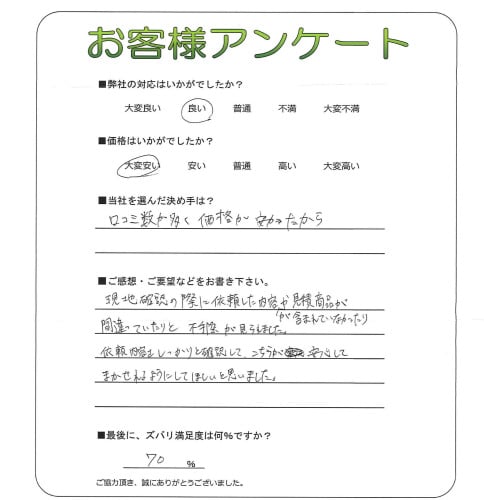 お客様アンケート
■弊社の対応はいかがでしたか？
大変良い 良い 普通 不満 大変不満
■価格はいかがでしたか？
大変安い 安い 普通 高い 大変高い
■当社を選んだ決め手は？
口コミ数が多く価格が安かったから
■ご感想・ご要望などをお書き下さい。
現地確認の際に依頼した内容や見積商品が
が含まれていなかったり
間違っていたりと不手際が見られました。
依頼内容はしっかりと確認して、こちらが安心して
まかせれるようにしてほしいと思いました。
■最後に、ズバリ満足度は何％ですか？
70 ％
ご協力頂き、誠にありがとうございました。